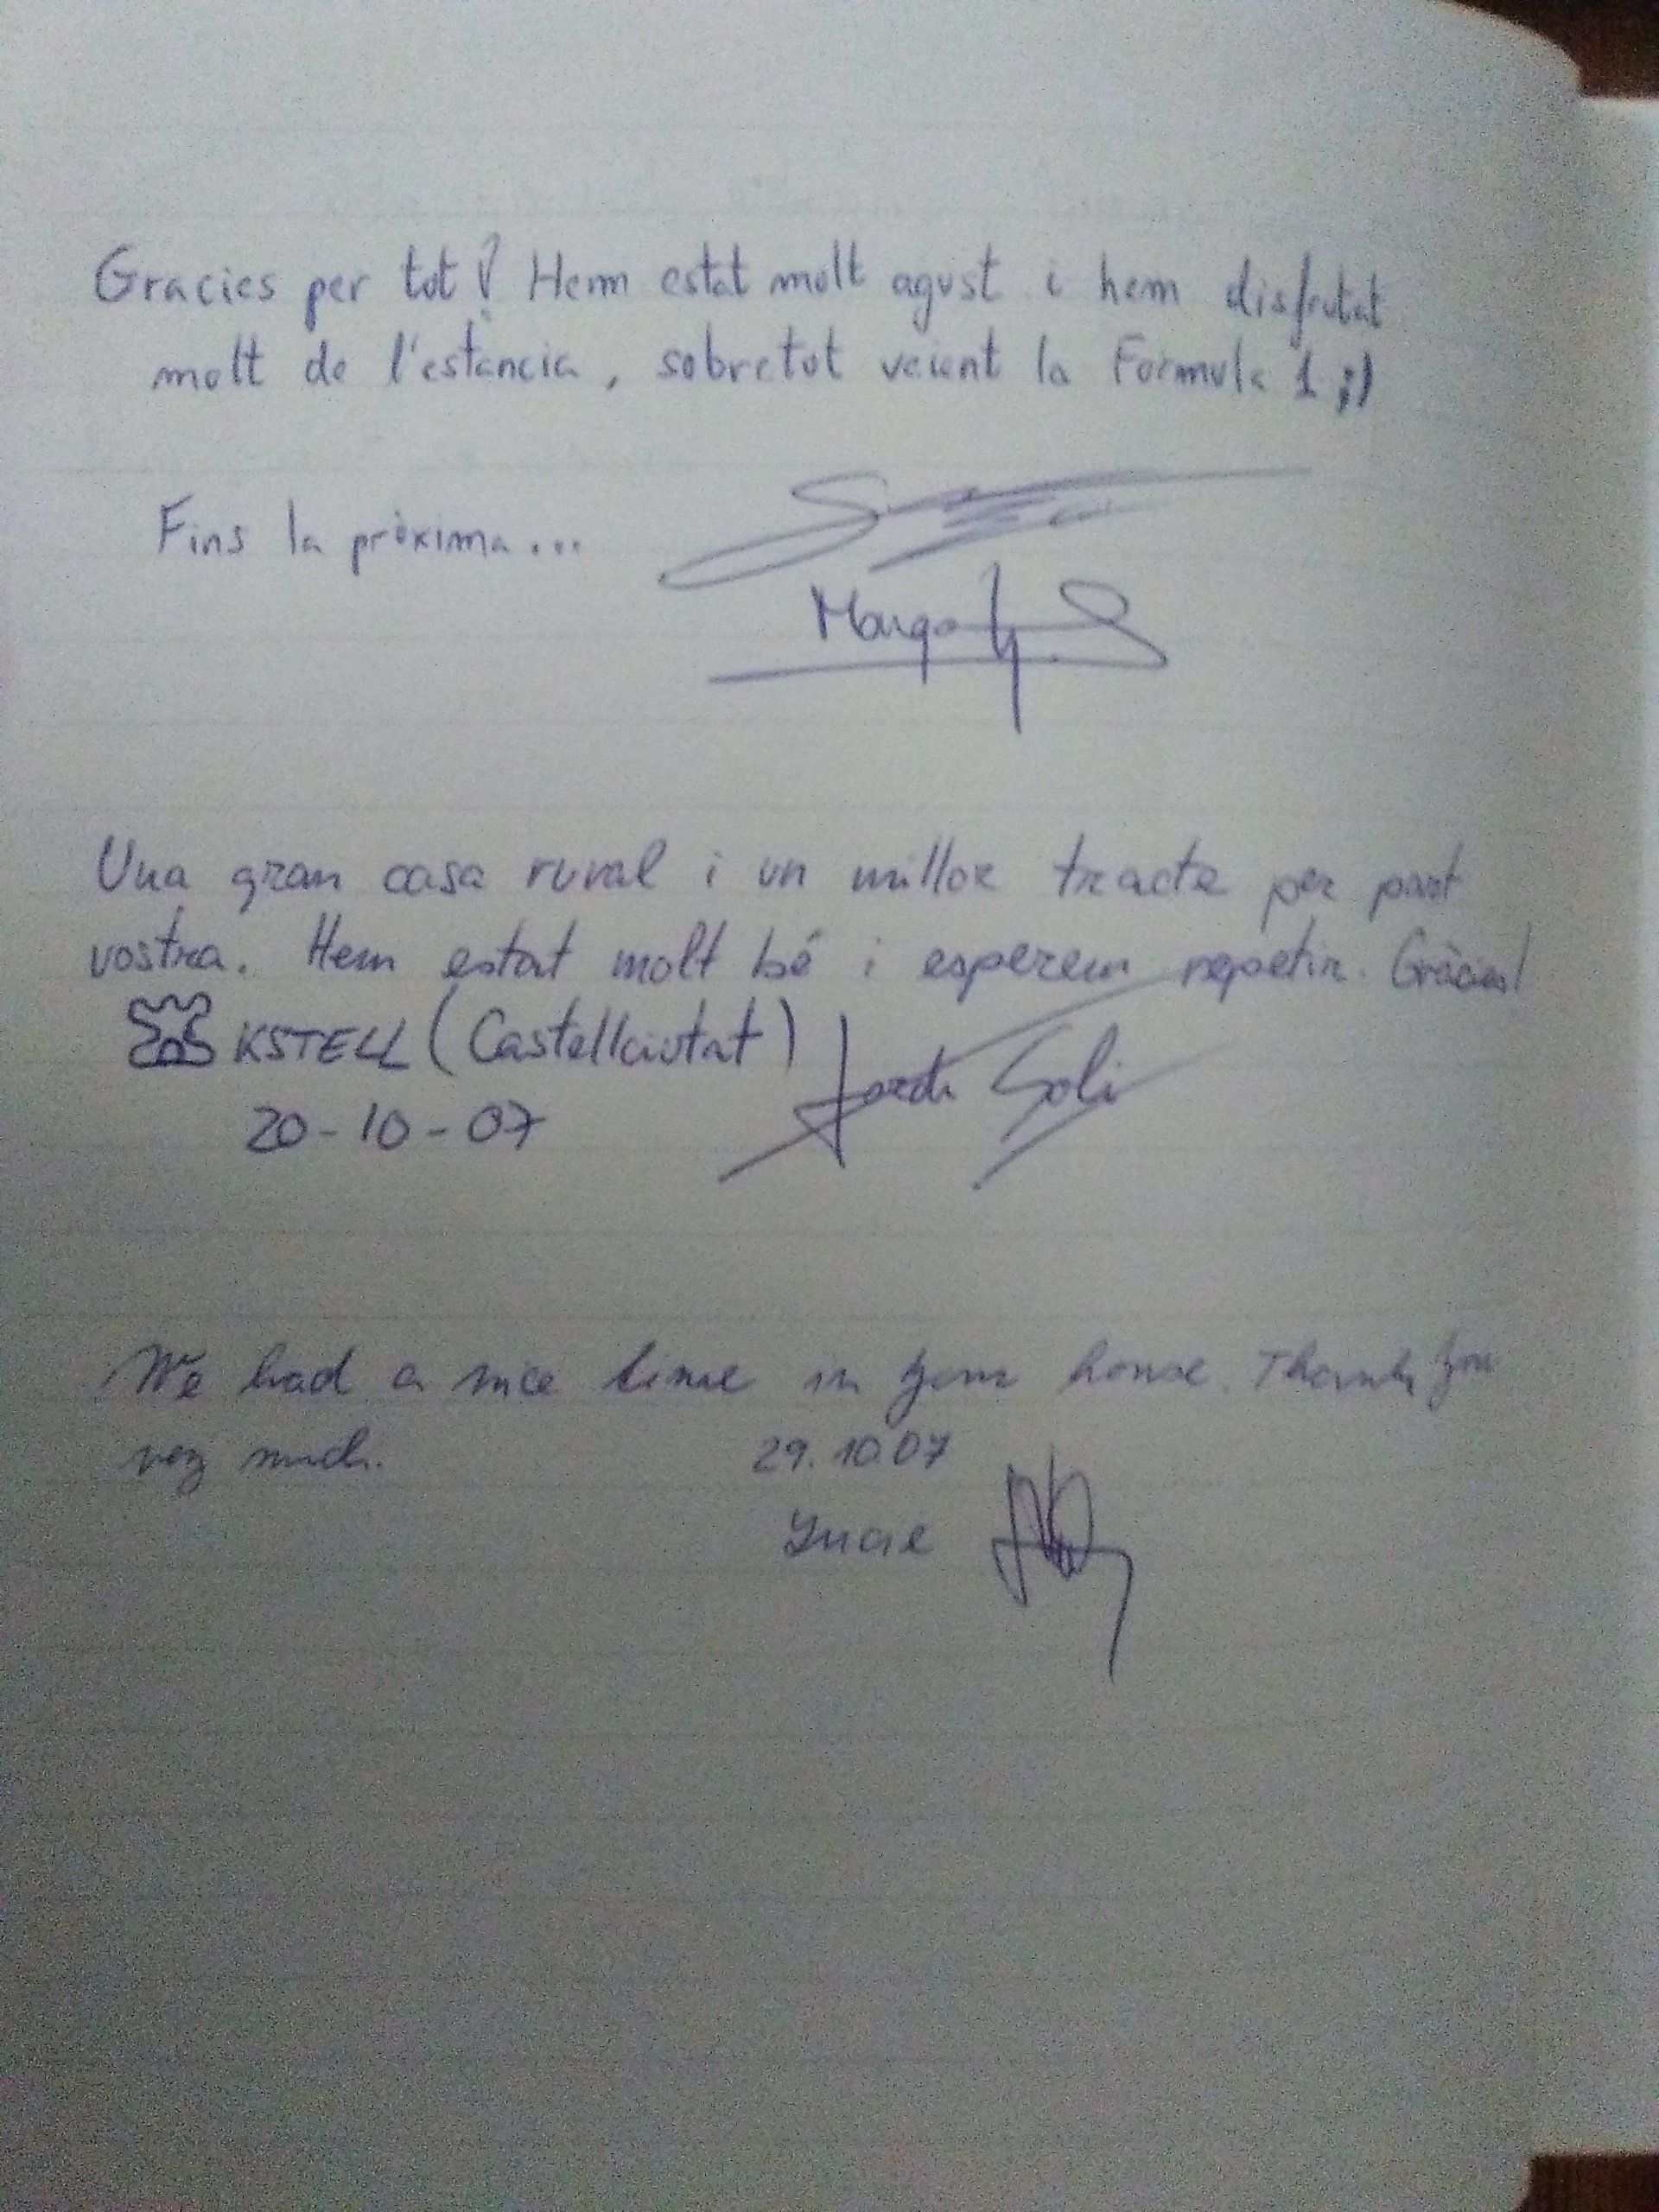 Gracies per tot! Hem estat molt agust i hem disfrutat
molt de l'estància, sobretot veient la Fórmula 1 ;)
Fins la pròxima...
Marga
Una gran casa rural i un millor tracte per part
vostra. Hem estat molt bé i esperem repetir. Gràcies!
KSTELL (Castellciutat)
Jordi Soli
20-10-07
We had a nice time in your house. Thank you
very much.
29.10.07
Lucie